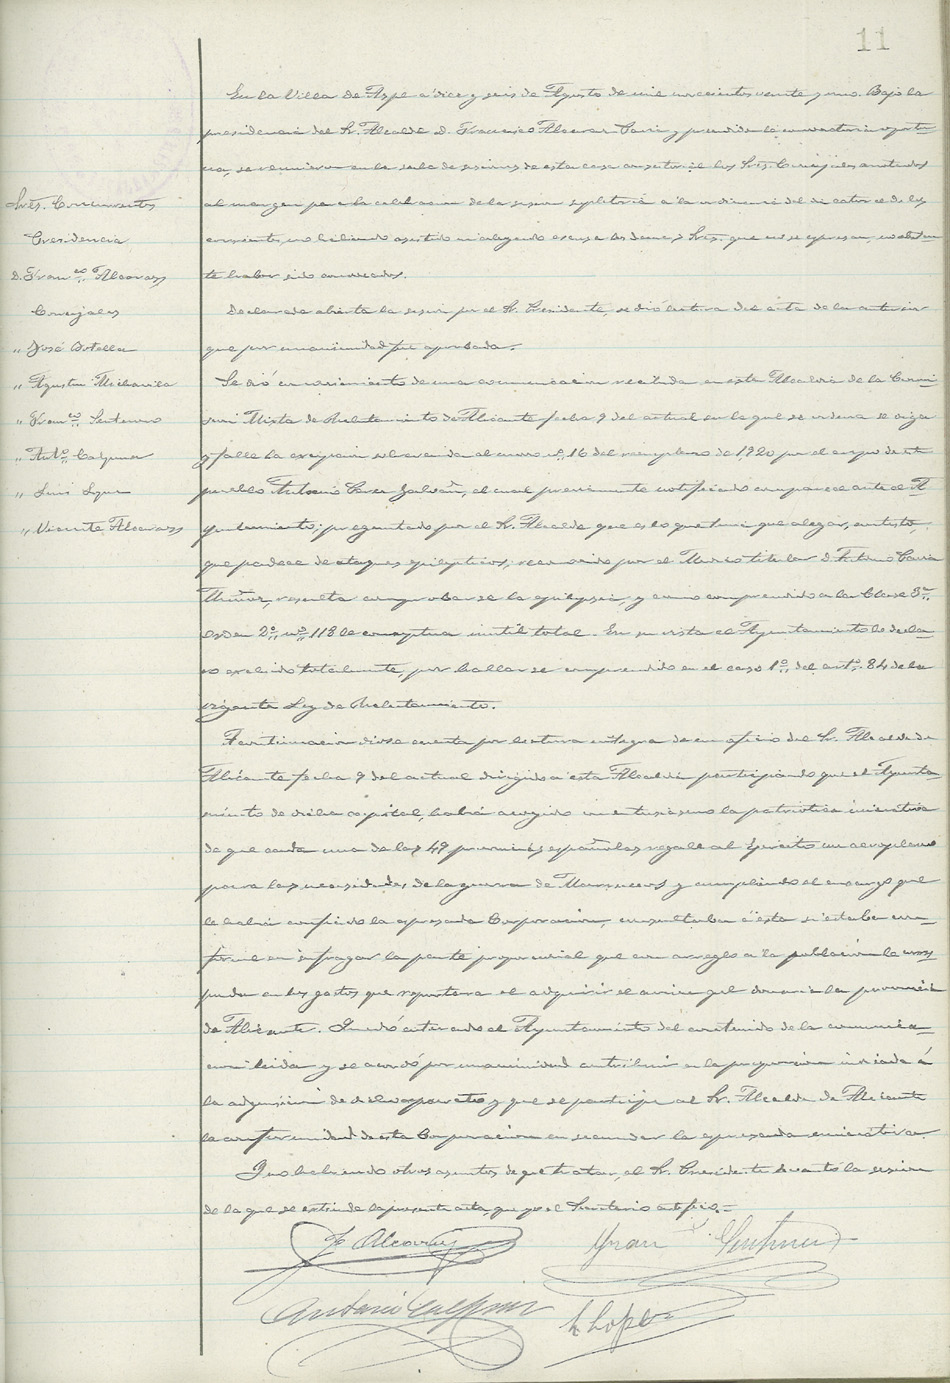 11
En la Villa de Aspe a diez y seis de Agosto de mil novecientos veinte y uno. Bajo la
presidencia del Sr. Alcalde D. Francisco Alcaraz Cara y precedida la convocatoria oportu-
na, se reunieron en la sala de sesiones de esta casa consistorial los Sres. Concejales anotados
al margen para la celebracion de la sesion supletoria a la ordinaria del dia catorce de los
corrientes, no habiendo asistido ni alegado escusa los demas Sres. que no se espresan, no obstan-
te haber sido convocados.
Sres. Concurrentes
Presidencia
D. Fran.co Alcaraz
Concejales
" José Botella
" Agustin
" Fran.co
" Ant.o Calpena
" Luis
" Vicente Alcaraz
Declarada abierta la sesion por el Sr. Presidente, se dió lectura del acta de la anterior
que por unanimidad fue aprobada.
Se dió conocimiento de una comunicacion recibida en esta Alcaldia de la Comi-
sion Mixta de Reclutamiento de Alicante fecha 9 del actual en la que se ordena se oiga
y falle la excepcion sobrevenida al mozo nº 16 del reemplazo de 1920 por el cupo de este
pueblo Antonio Galvañ, el cual previamente notificado comparece ante el A-
yuntamiento; preguntado por el Sr. Alcalde que es lo que tenia que alegar, contestó,
que padece de ataques epilepticos; reconocido por el Medico titular D. Antonio
resulta comprobarse la epilepsia, y como comprendido a la Clase 3ª
orden 2º nº 118 le conceptua inutil total. En su vista el Ayuntamiento le decla-
ro excluido totalmente, por hallarse comprendido en el caso 1º del artº 84 de la
vigente Ley de Reclutamiento.
A continuacion diose cuenta por lectura integra de un oficio del Sr. Alcalde de
Alicante fecha 9 del actual dirigido a esta Alcaldia participando que el Ayunta-
miento de dicha capital, habia acogido con entusiasmo la patriotica iniciativa
de que cada una de las 49 provincias españolas regale al Ejército un aeroplano
para las necesidades de la guerra de Marruecos y cumpliendo el encargo que
le habia conferido la espresada Corporacion, consultaba a esta si estaba con-
forme en sufragar la parte proporcional que con arreglo a la poblacion la corres-
ponda en los gastos que reportara el adquirir el avion que donaria la provincia
de Alicante. Quedó enterado el Ayuntamiento del contenido de la comunica-
cion leida y se acordó por unanimidad contribuir en la proporcion iniciada á
la adquisicion de dicho aparato y que se participe al Sr. Alcalde de Alicante
la conformidad de esta Corporacion en secundar la espresada iniciativa.
Y no habiendo otros asuntos de que tratar, el Sr. Presidente levantó la sesion
de la que se estiende la presente acta, que yo el Secretario certifico.=
F. Alcaraz
Fran
Antonio Calpena
Lopez